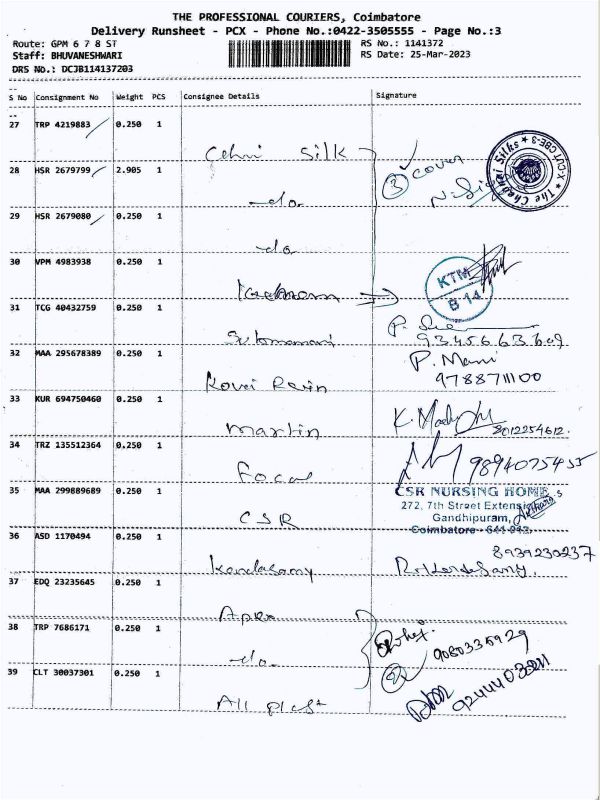 THE PROFESSIONAL COURIERS, Coimbatore
Delivery Runsheet - PCX - Phone No.:0422-3505555 - Page No.:3
Route: GPM 6 7 8 ST
RS No.: 1141372
Staff: BHUVANESHWARI
RS Date: 25-Mar-2023
DRS No.: DCJB114137203
S No Consignment No Weight PCS Consignee Details Signature
27 TRP 4219883 0.250 1
silk
28 HSR 2679799 2.905 1
3 cover
The Chennai Silks CBE-3
do
29 HSR 2679080 0.250 1
do
30 VPM 4983938 0.250 1
KTM
B 14
31 TCG 40432759 0.250 1
P.
32 MAA 295678389 0.250 1
P. Mani
Kovai
9788711100
33 KUR 694750460 0.250 1
martin
8012254612
34 TRZ 135512364 0.250 1
Focal
35 MAA 299889689 0.250 1
CSR
CSR NURSING HOME
272, 7th Street Extension
Gandhipuram,
Coimbatore - 641 012.
36 ASD 1170494 0.250 1
8939230237
Kandasamy
37 EDQ 23235645 0.250 1
Apex
38 TRP 7686171 0.250 1
do
2
9080335929
39 CLT 30037301 0.250 1
All plast